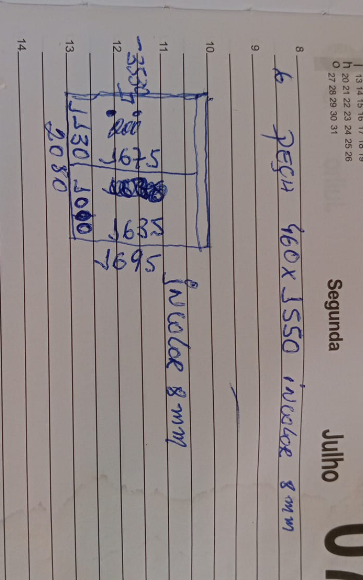 13 14 15 16 17 18 19
h 20 21 22 23 24 25 26
o 27 28 29 30 31
Segunda
Julho
8
6 PEÇA 460 X 1550 INCOLOR 8 mm
9
10
11
INCOLOR 8 mm
12
200 1675 1635 1695
13
1130 1000
2080
14